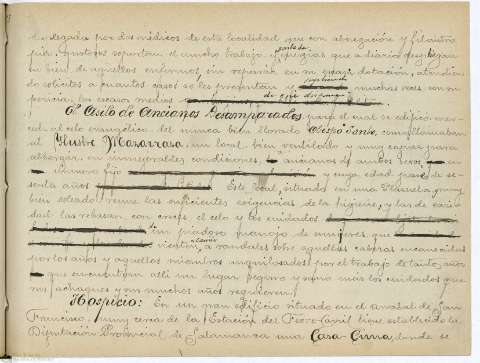 delegada por dos médicos de esta localidad que con abnegación y filantro-
pía gustosos soportan el mucho trabajo y penosas que a diario despliegan
en bien de aquellos enfermos, sin reparar en su escasa dotación, atendien-
do solícitos a cuantos casos se les presentan muchas veces con su-
pliendo
pericia los escasos medios de que disponen
6º Asilo de Ancianos Desamparados, para el cual se edificó mer-
ced al celo evangélico del nunca bien llorado Obispo Santo, como llamaban
al Ilustre Mazarrasa, un local bien ventilado y muy capaz para
albergar, en inmejorables condiciones, ancianos de ambos sexos, en
número fijo y cuya edad pase de se-
senta años Este local, situado en una Plazuela, muy
bien soleado, reúne las suficientes exigencias de la higiene, y las de cari-
dad las rebasan, con creces, el celo y los cuidados
de un piadoso manojo de mujeres que
vierten, a raudales sobre aquellas cabezas encanecidas
cariño
por los años y aquellos miembros aniquilados por el trabajo de tanto año,
que encuentran allí un lugar seguro y sano más los cuidados que
sus achaques y sus muchos años requieren.
Hospicio: En un gran edificio situado en el arrabal de San
Francisco, muy cerca de la Estación del Ferro-Carril tiene establecida la
Diputación Provincial de Salamanca una Casa-Cuna, donde se